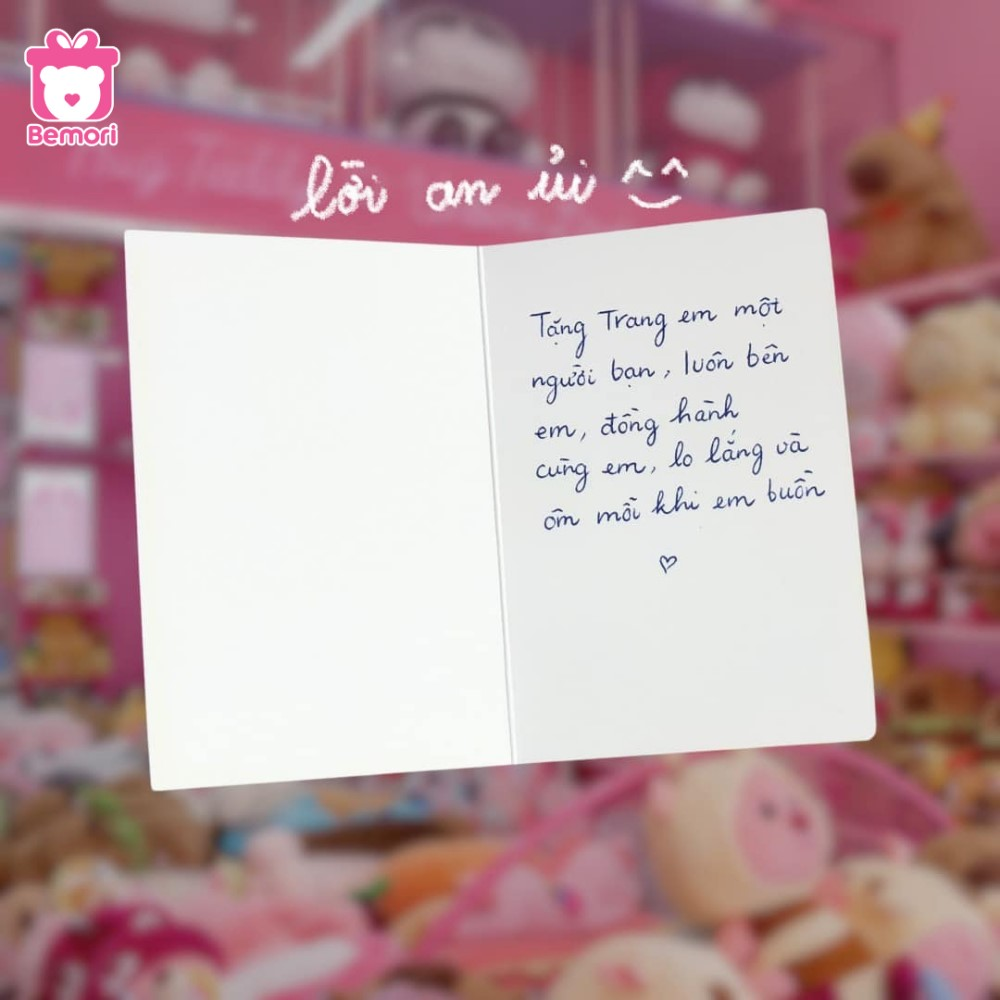 Bemori
lời an ủi ^‿^
Tặng Trang em một
người bạn, luôn bên
em, đồng hành
cùng em, lo lắng và
ôm mỗi khi em buồn
♡